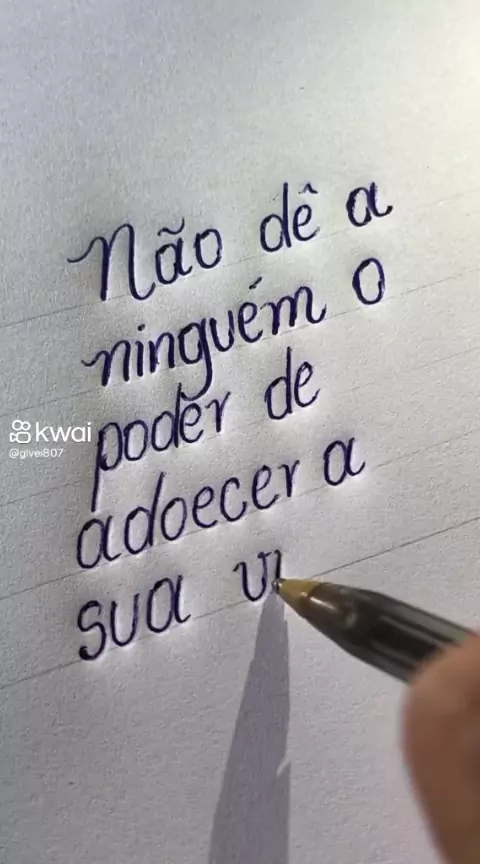 Não dê a
ninguém o
poder de
kwai
@glvei807
adoecer a
sua vi